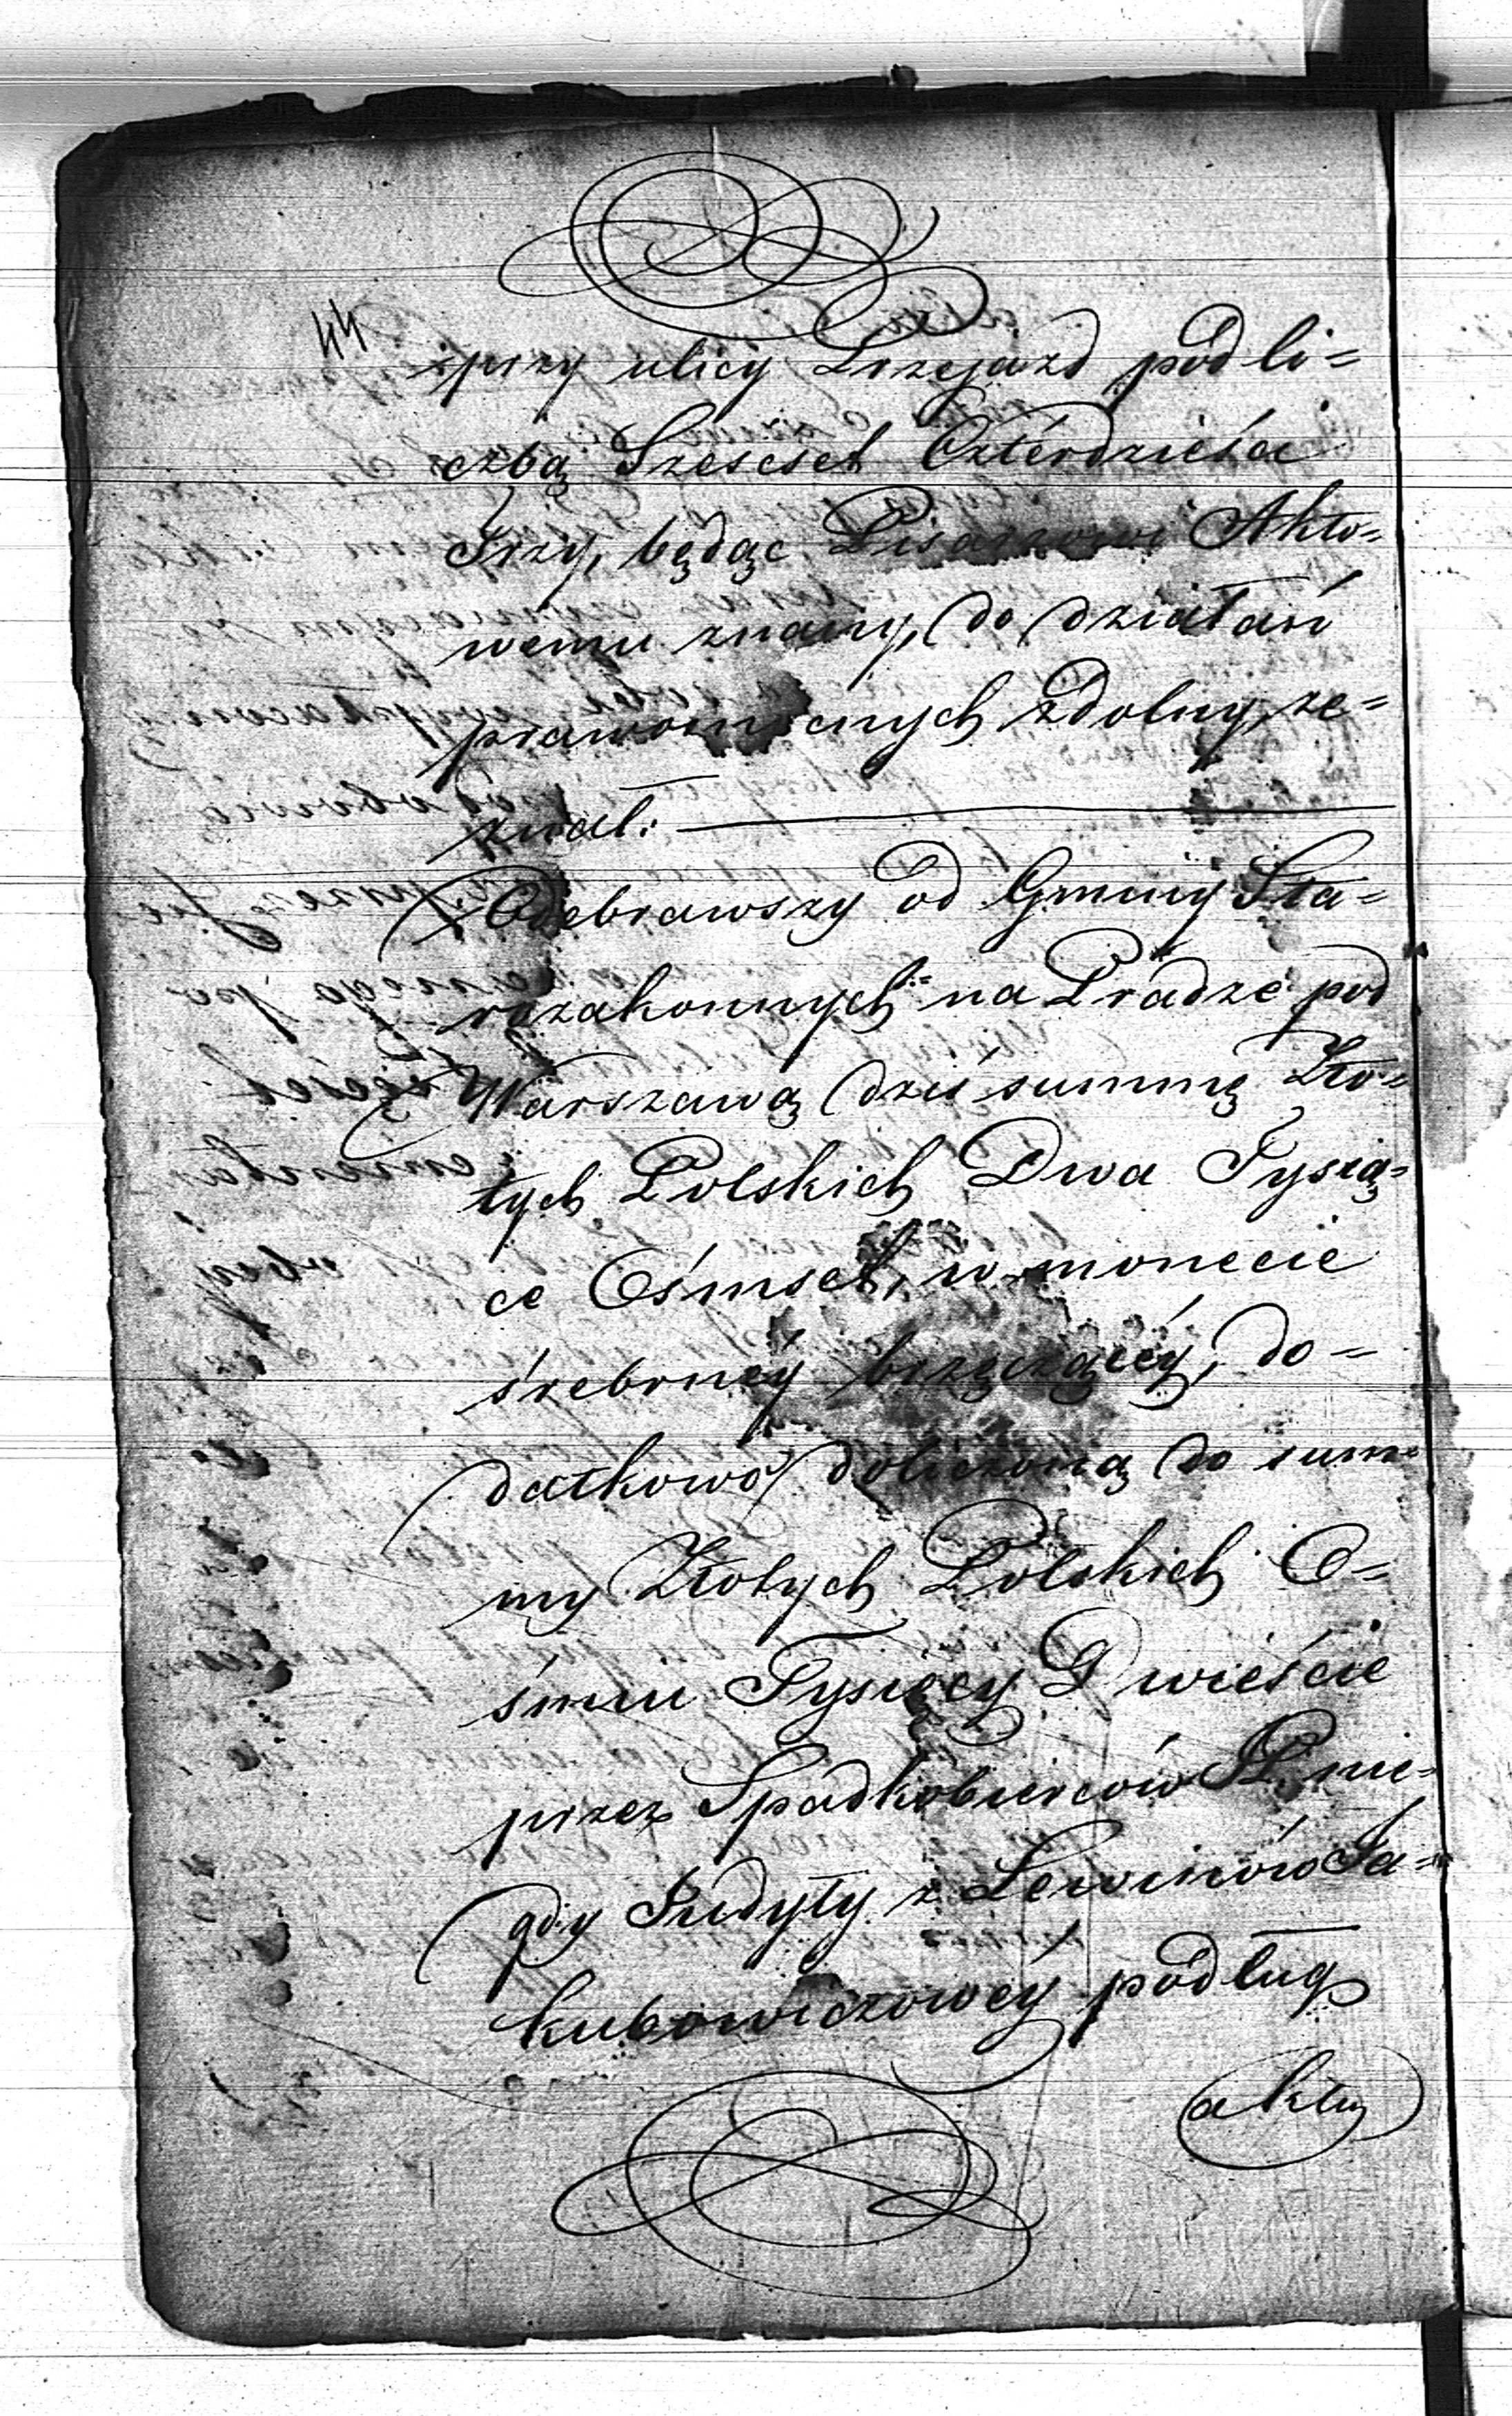 44
przy ulicy Przejazd pod li=
czbą Szescset Czterdzieści
Trzy, będąc Pisarzowi Akto=
wemu znany, do działań
prawomocnych zdolny, ze=
znał:
Odebrawszy od Gminy Sta=
rozakonnych na Pradze pod
Warszawą dziś summę Zło=
tych Polskich Dwa Tysią=
ce Ośmset, w monecie
śrebrnéy brzęczącéy, do=
datkowo doliczoną do sum=
my Złotych Polskich O=
śmiu Tysięcy Dwieście
przez Spadkobierców P. nie=
gdy Judyty z Lewinów Ja=
kubowiczowéy podług
aktu